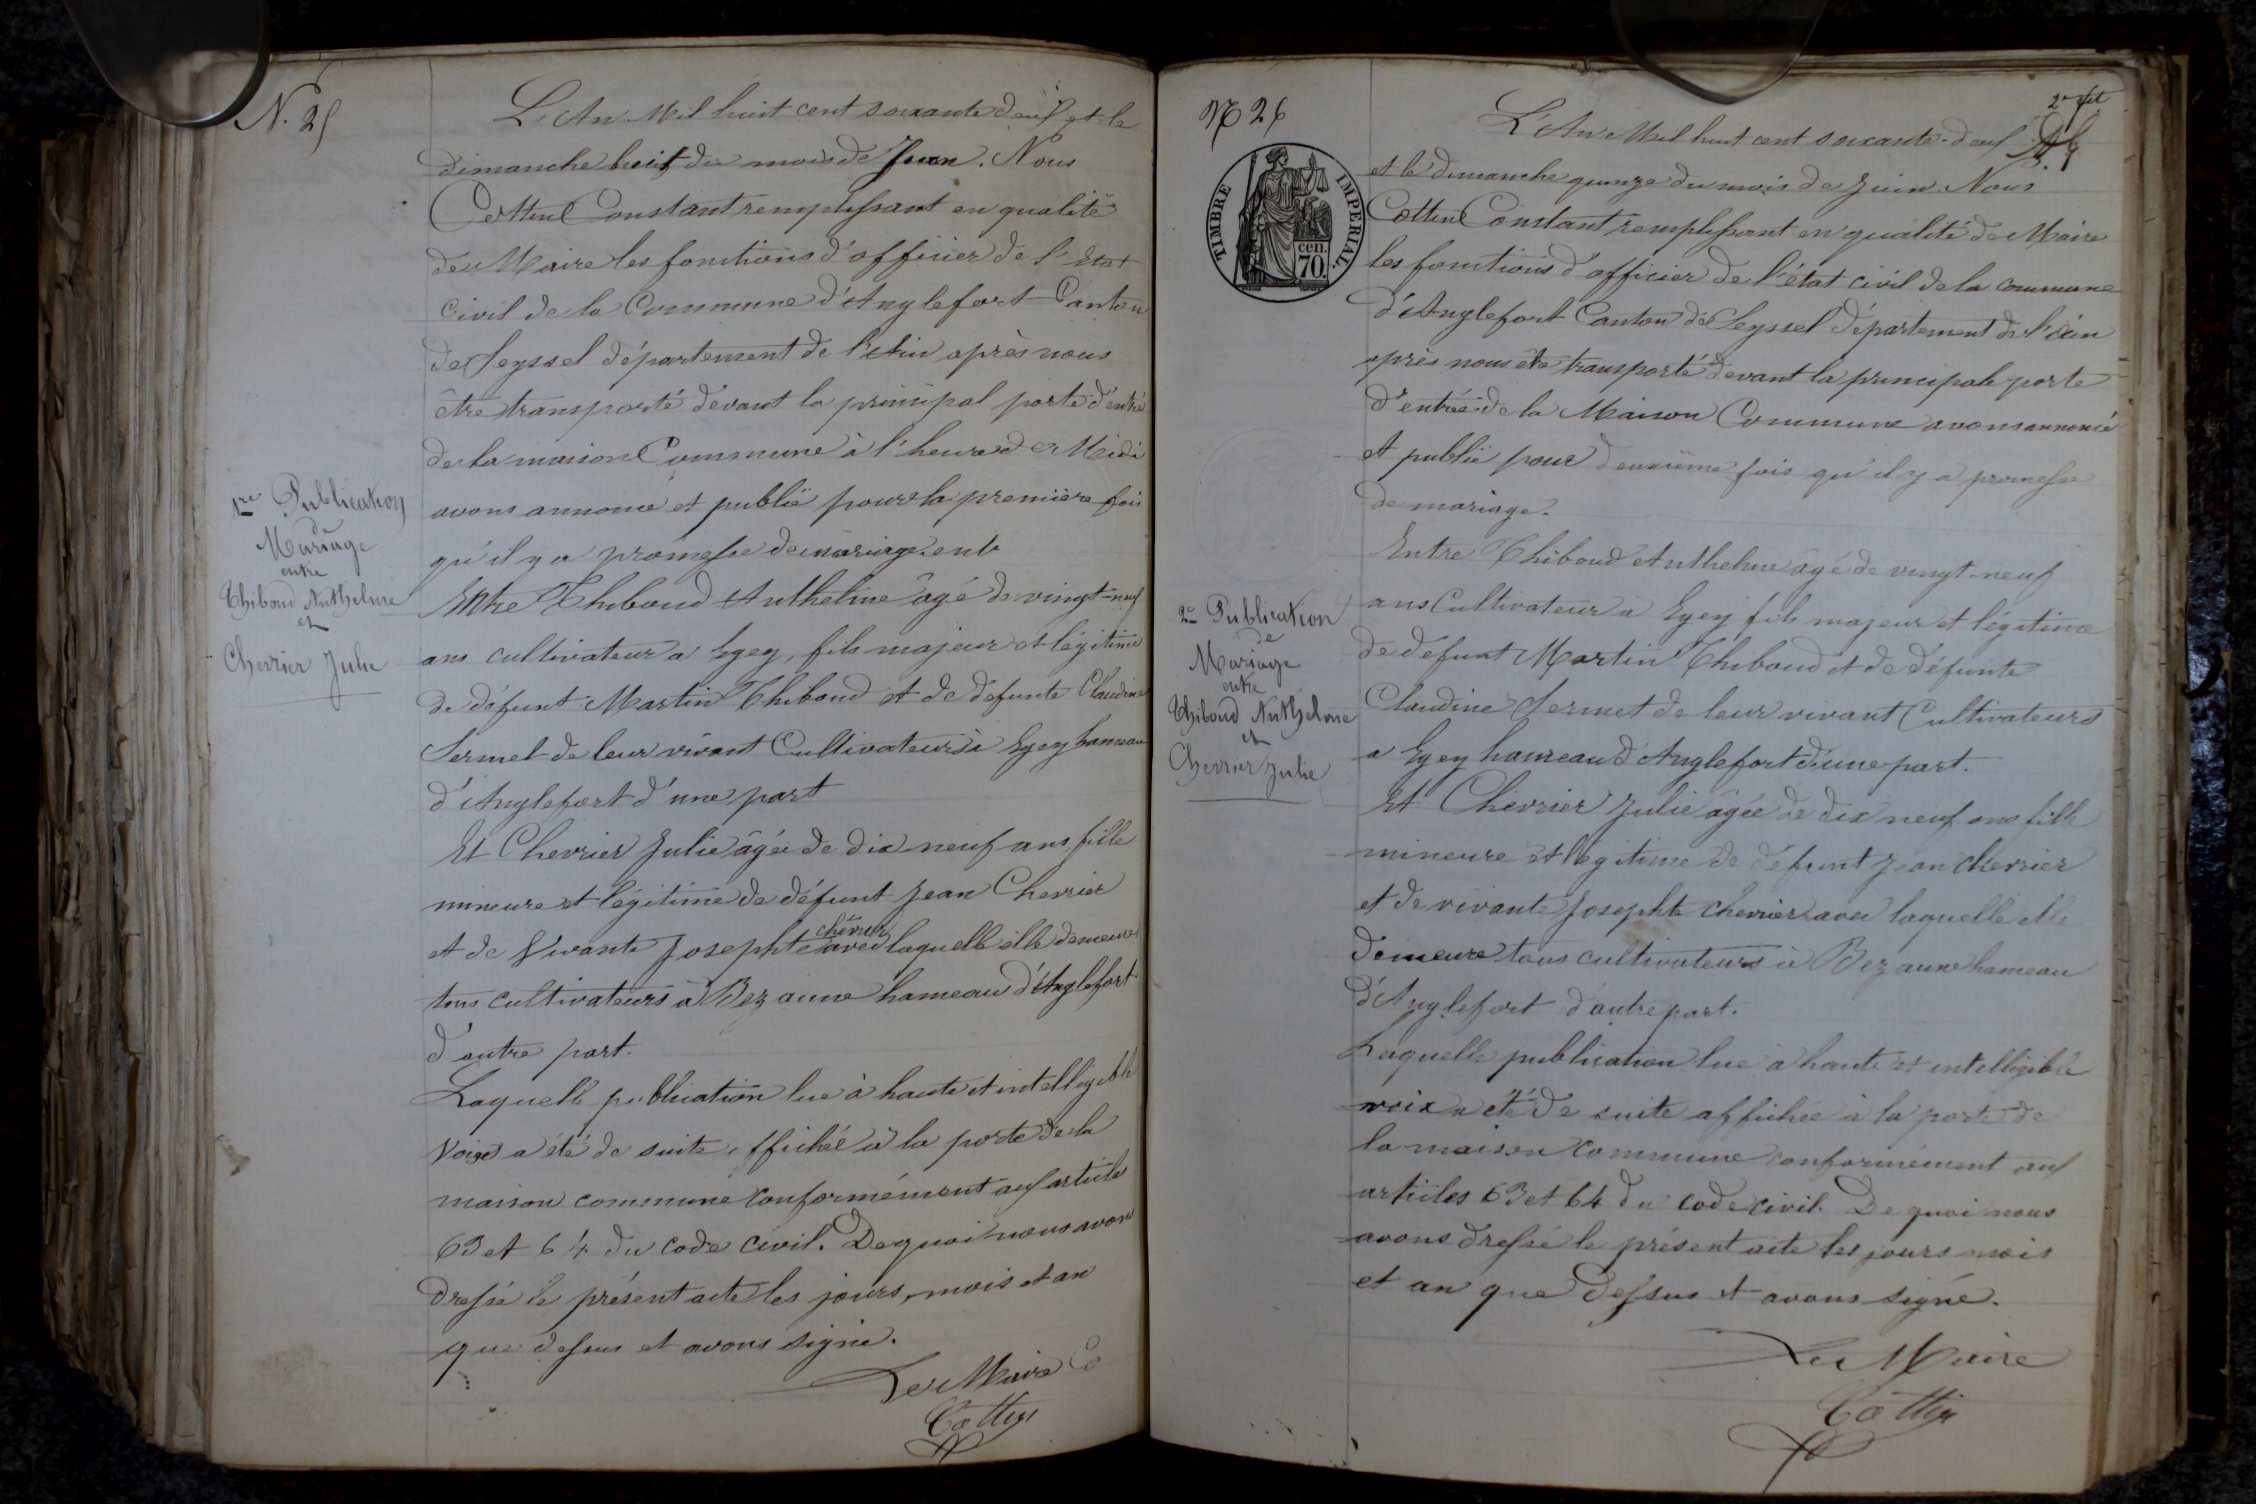 N. 25
L'An Mil huit cent soixante deux et le
dimanche huit du mois de Juin. Nous
Cottin Constant remplissant en qualité
de Maire les fonctions d'officier de l'Etat
civil de la Commune d'Anglefort Canton
de Seyssel département de l'Ain après nous
être transporté devant la principal porte d'entré
de la maison Commune à l'heure de Midi
avons annoncé et publié pour la première fois
qu'il y a promesse de mariage. ent
Entre Thiboud Anthelme âgé de vingt-neuf
ans cultivateur a Eyey, fils majeur et légitime
de défunt Martin Thiboud et de defunte Claudine
Sermet de leur vivant Cultivateurs à Eyey hameau
d'Anglefort d'une part
Et Chevrier Julie âgée de dix-neuf ans fille
mineure et légitime de défunt Jean Chevrier
et de Vivante Josephte chevrier avec laquelle elle demeure
tous cultivateurs à Bezanne hameau d'Anglefort
d'autre part.
Laquelle publication lue à haute et intelligible
Voix a été de suite affichée à la porte de la
maison commune conformément aux articles
63 et 64 du code civil. De quoi nous avons
dressé le présent acte les jours, mois et an
que dessus et avons signé.
Le Maire
Cottin
1re Publication
de
Mariage
entre
Thiboud Anthelme
et
Chevrier Julie
N 26
2e
TIMBRE IMPERIAL.
cen.
70.
L'An Mil huit cent soixante-deux
et le dimanche quinze du mois de Juin Nous
Cottin Constant remplissant en qualité de Maire
les fonctions d'officier de l'état civil de la commune
d'Anglefort Canton de Seyssel département de l'Ain
après nous être transporté devant la principale porte
d'entrée de la Maison Commune avons annoncé
et publié pour deuxième fois qu'il y a promesse
de mariage.
Entre Thiboud Anthelme âgé de vingt-neuf
ans Cultivateur a Eyey fils majeur et légitime
de défunt Martin Thiboud et de défunte
Claudine Sermet de leur vivant Cultivateurs
a Eyey hameau d'Anglefort d'une part.
Et Chevrier Julie âgée de dix neuf ans fille
mineure et légitime de défunt Jean chevrier
et de vivante Josephte chevrier avec laquelle elle
demeure tous cultivateurs à Bezanne hameau
d'Anglefort d'autre part.
Laquelle publication lue à haute et intelligible
voix a été de suite affichée à la porte de
la maison commune conformément aux
articles 63 et 64 du code civil. De quoi nous
avons dressé le présent acte les jours mois
et an que dessus et avons signé.
Le Maire
Cottin
2e Publication
de
Mariage
entre
Thiboud Anthelme
et
Chevrier Julie